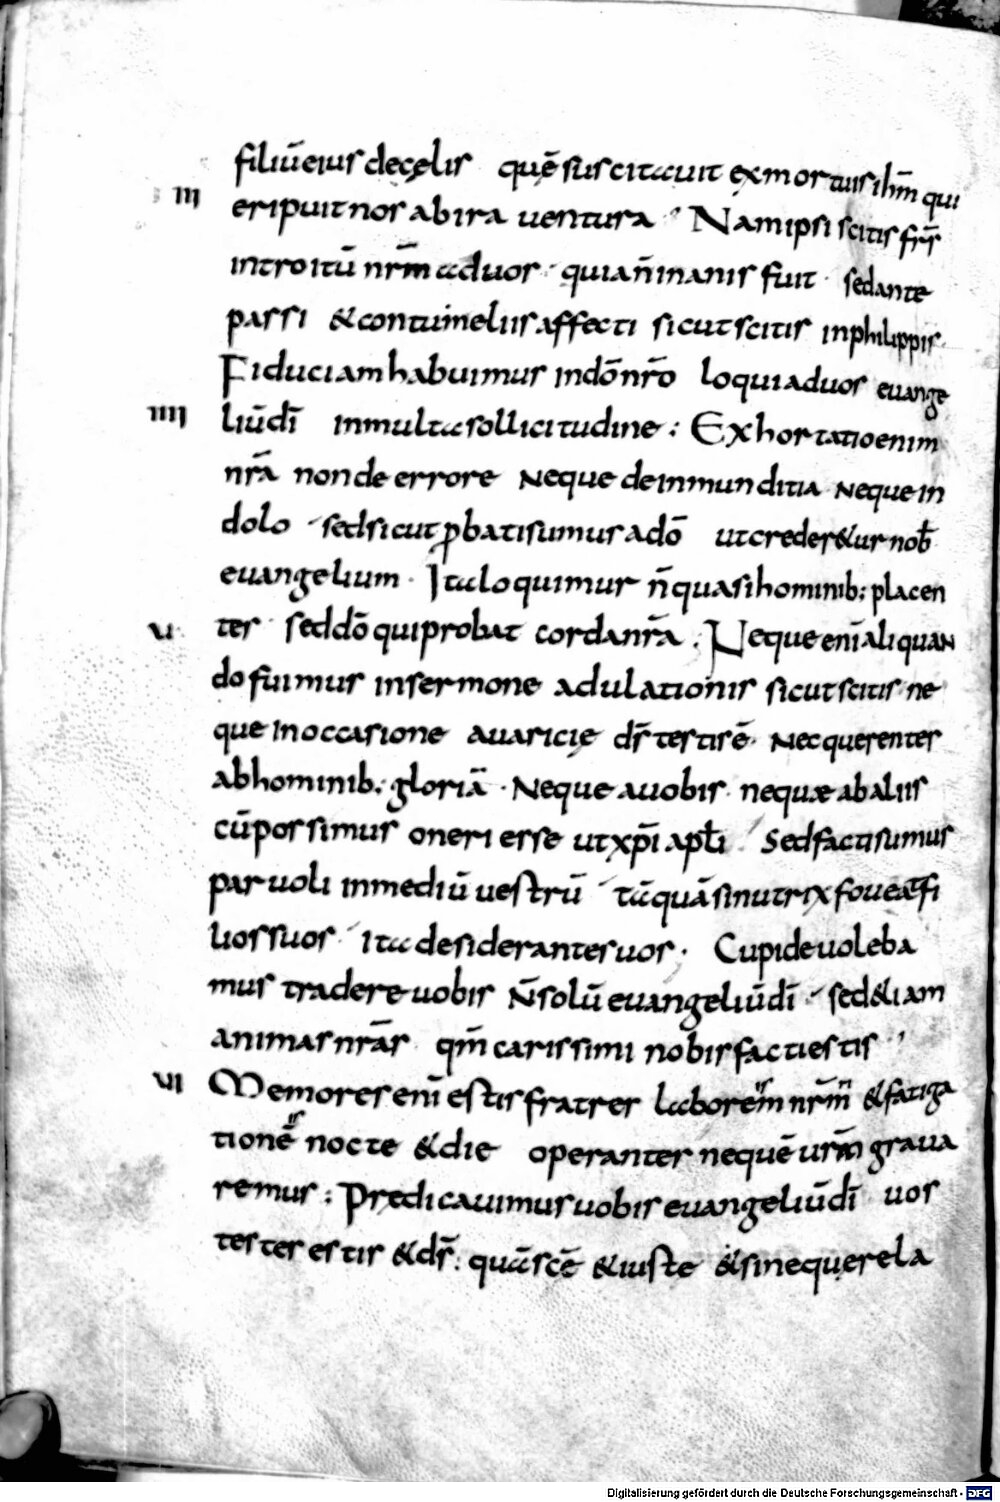 filiū eius de cęlis quē suscitauit ex mortuis ihm̄ qui
III eripuit nos ab ira uentura Nam ipsi scitis frs̄
introitū nrm̄ ad uos · quia n̄ inanis fuit · sed ante
passi & contumeliis affecti sicut scitis in philippis ·
Fiduciam habuimus in dō nrō loqui ad uos euange
IIII liū dī in multa sollicitudine : Exhortatio enim
nrā non de errore neque de inmunditia neque in
dolo · sed sicut ꝓbati sumus a dō ut creder&ur nob̄
euangelium · Ita loquimur n̄ quasi hominib; placen
V tes sed dō qui probat corda nrā . Neque enī aliquan
do fuimus in sermone adulationis sicut scitis ne
que in occasione auaricię ds̄ testis ē · Nec querentes
ab hominib; gloriā · Neque a uobis · nequæ ab aliis
cū possimus oneri esse ut xpī apłi Sed facti sumus
paruoli in mediū uestrū tāquā si nutrix foueat fi
lios suos ita desiderantes uos · Cupide uoleba
mus tradere uobis N̄ solū euangeliū dī · sed &iam
animas nrās qm̄ carissimi nobis facti estis
VI Memores enī estis fratres laborem̄ nrm̄ & fatiga
tionē nocte & die operantes ne quē urm̄ graua
remus : Prędicauimus uobis euangeliū dī uos
testes estis & ds̄ : quā scē & iuste & sine querela
Digitalisierung gefördert durch die Deutsche Forschungsgemeinschaft - DFG